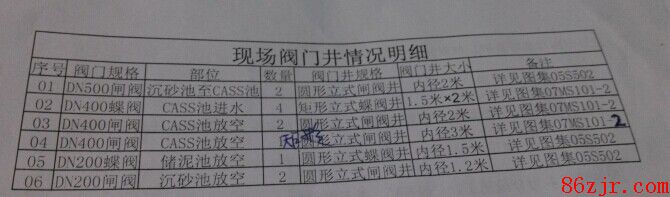 现场阀门井情况明细
序号 阀门规格 部位 数量 阀门井规格 阀门井大小 备注
01 DN500闸阀 沉砂池至CASS池 2 圆形立式闸阀井 内径2米 详见图集05S502
02 DN400蝶阀 CASS池进水 4 矩形立式蝶阀井 1.5米×2米 详见图集07MS101-2
03 DN400闸阀 CASS池放空 2 圆形立式闸阀井 内径2米 详见图集07MS101-2
04 DN400闸阀 CASS池放空 圆形立式闸阀井 内径3米 详见图集07MS101-2
05 DN200蝶阀 储泥池放空 1 圆形立式蝶阀井 内径1.5米 详见图集05S502
06 DN200闸阀 沉砂池放空 2 圆形立式闸阀井 内径1.2米 详见图集05S502
86zjr.com